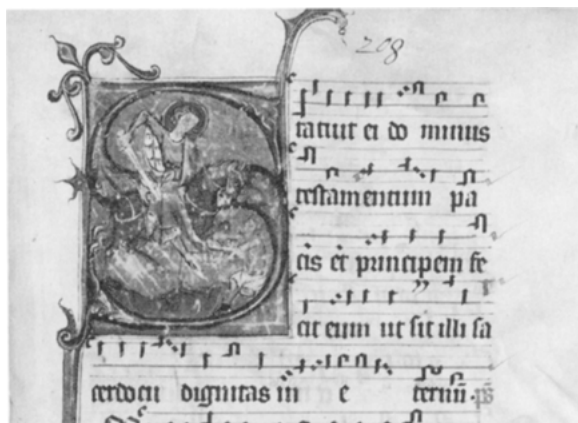 208
S
tatuit ei do minus
testamentum pa
cis et principem fe
cit eum ut sit illi sa
cerdocii dignitas in e ternū. ps̄